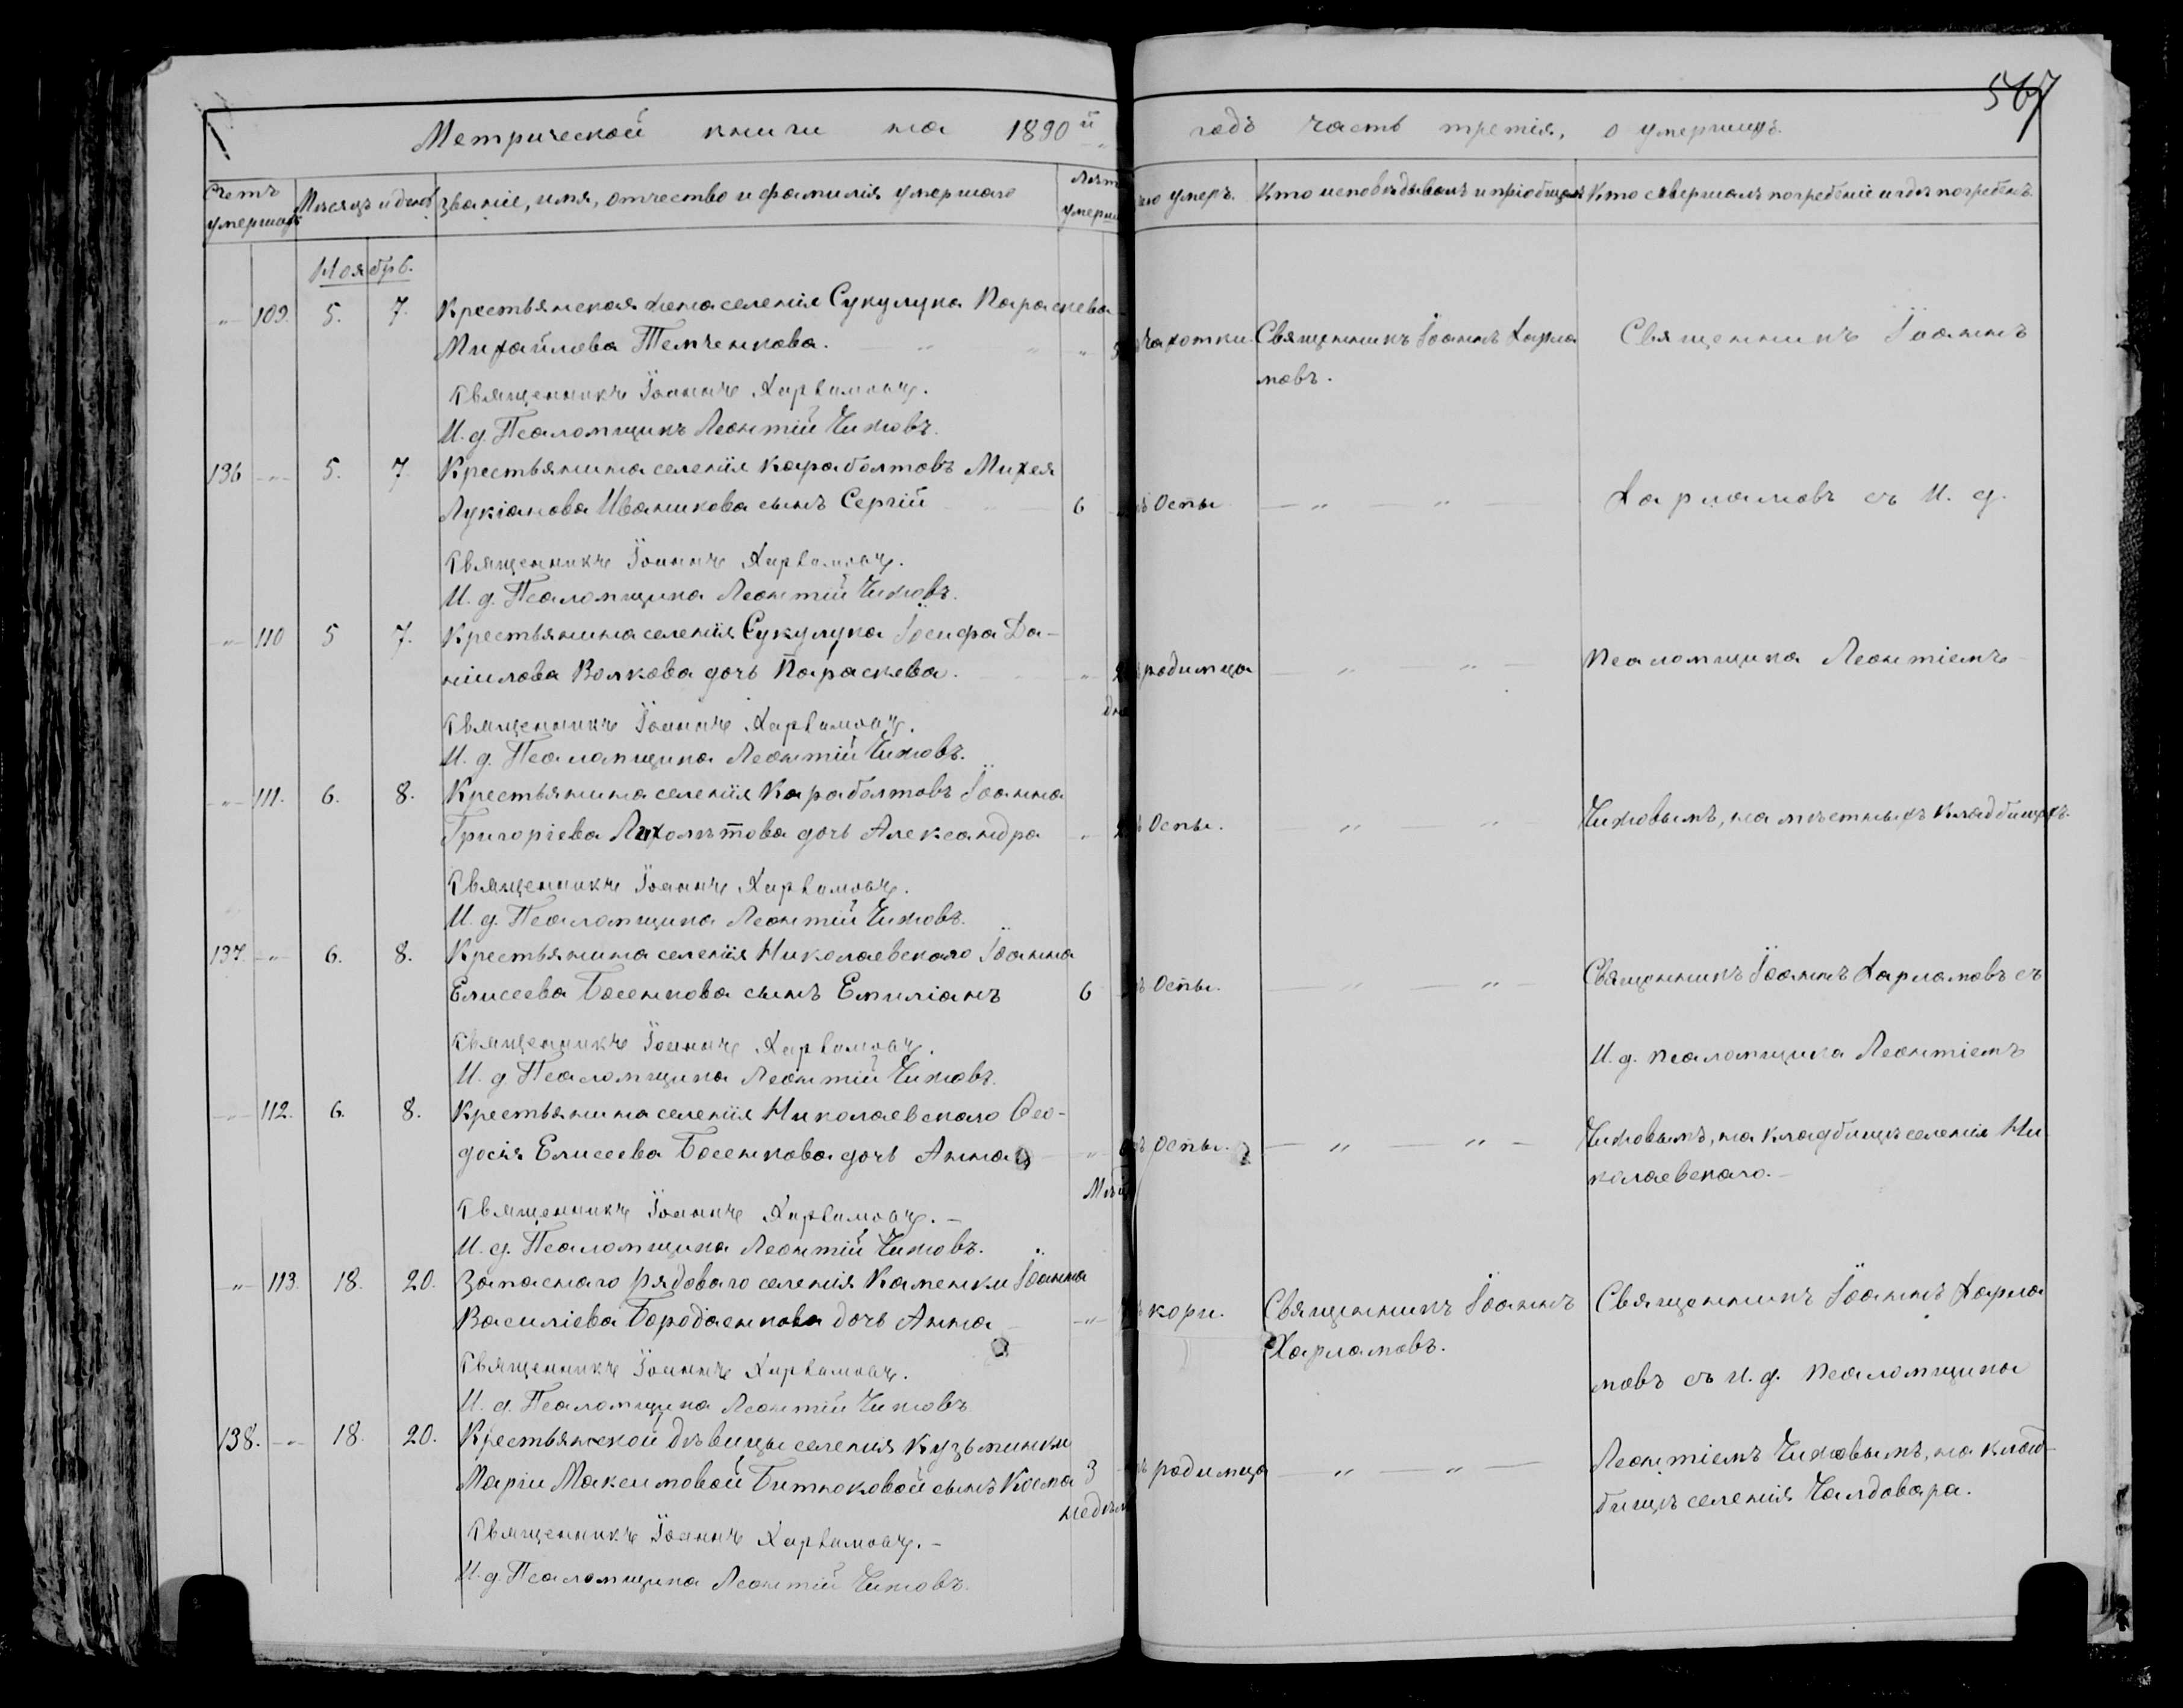 567
Метрической книги на 1890й годъ часть третія, о умершихъ.
Счетъ умершихъ
Мѣсяцъ и день
Званіе, имя, отчество и фамилія умершаго
Лѣт умерш
чего умеръ.
Кто исповѣдывалъ и пріобщалъ
Кто совершалъ погребеніе и гдѣ погребенъ.
Ноябрь.
„ 109. 5. 7. Крестьянская жена селенія Сукулука Параскева
Михайлова Темченкова. „ „ „ Чахотки Священникъ Іоаннъ Харла Священникъ Іоаннъ
мовъ.
Священникъ Іоаннъ Харламовъ.
И. д. Псаломщикъ Леонтій Чижовъ.
136 „ 5. 7 Крестьянина селенія Карабалтовъ Михея
Лукіанова Иваникова сынъ Сергій 6 Оспы „ „ Харламовъ съ И. д.
Священникъ Іоаннъ Харламовъ.
И. д. Псаломщика Леонтій Чижовъ.
„ 110 5 7. Крестьянина селенія Сукулука Іосифа Да-
ніилова Волкова дочь Параскева. „ родимца „ „ Псаломщика Леонтіемъ
дне
Священникъ Іоаннъ Харламовъ.
И. д. Псаломщика Леонтій Чижовъ.
„ 111. 6. 8. Крестьянина селенія Карабалтовъ Іоанна
Григоріева Лихолѣтова дочь Александра „ Оспы. „ „ Чижовымъ, на мѣстныхъ кладбищахъ.
Священникъ Іоаннъ Харламовъ.
И. д. Псаломщика Леонтій Чижовъ.
137. „ 6. 8. Крестьянина селенія Николаевскаго Іоанна
Елисеева Босенкова сынъ Емиліанъ 6 Оспы. „ „ Священникъ Іоаннъ Харламовъ съ
Священникъ Іоаннъ Харламовъ.
И. д. псаломщика Леонтіемъ
И. д. Псаломщика Леонтій Чижовъ.
„ 112. 6. 8. Крестьянина селенія Николаевскаго Ѳео-
досія Елисеева Босенкова дочь Анна „ Оспы. „ „ Чижовымъ, на кладбищѣ селенія Ни
Мѣс
колаевскаго.
Священникъ Іоаннъ Харламовъ.
И. д. Псаломщика Леонтій Чижовъ.
„ 113. 18. 20. Запаснаго рядоваго селенія Каменки Іоанна
Василіева Бородаенкова дочь Анна „ кори. Священникъ Іоаннъ Священникъ Іоаннъ Харла
Харламовъ.
Священникъ Іоаннъ Харламовъ.
мовъ съ И. д. псаломщика
И. д. Псаломщика Леонтій Чижовъ
138. „ 18. 20. Крестьянской дѣвицы селенія Кузьминки
Маріи Максимовой Битюковой сынъ Косма 3 родимца „ „ Леонтіемъ Чижовымъ, на клад-
недѣл
бищѣ селенія Чалдовара.
Священникъ Іоаннъ Харламовъ.
И. д. Псаломщика Леонтій Чижовъ.